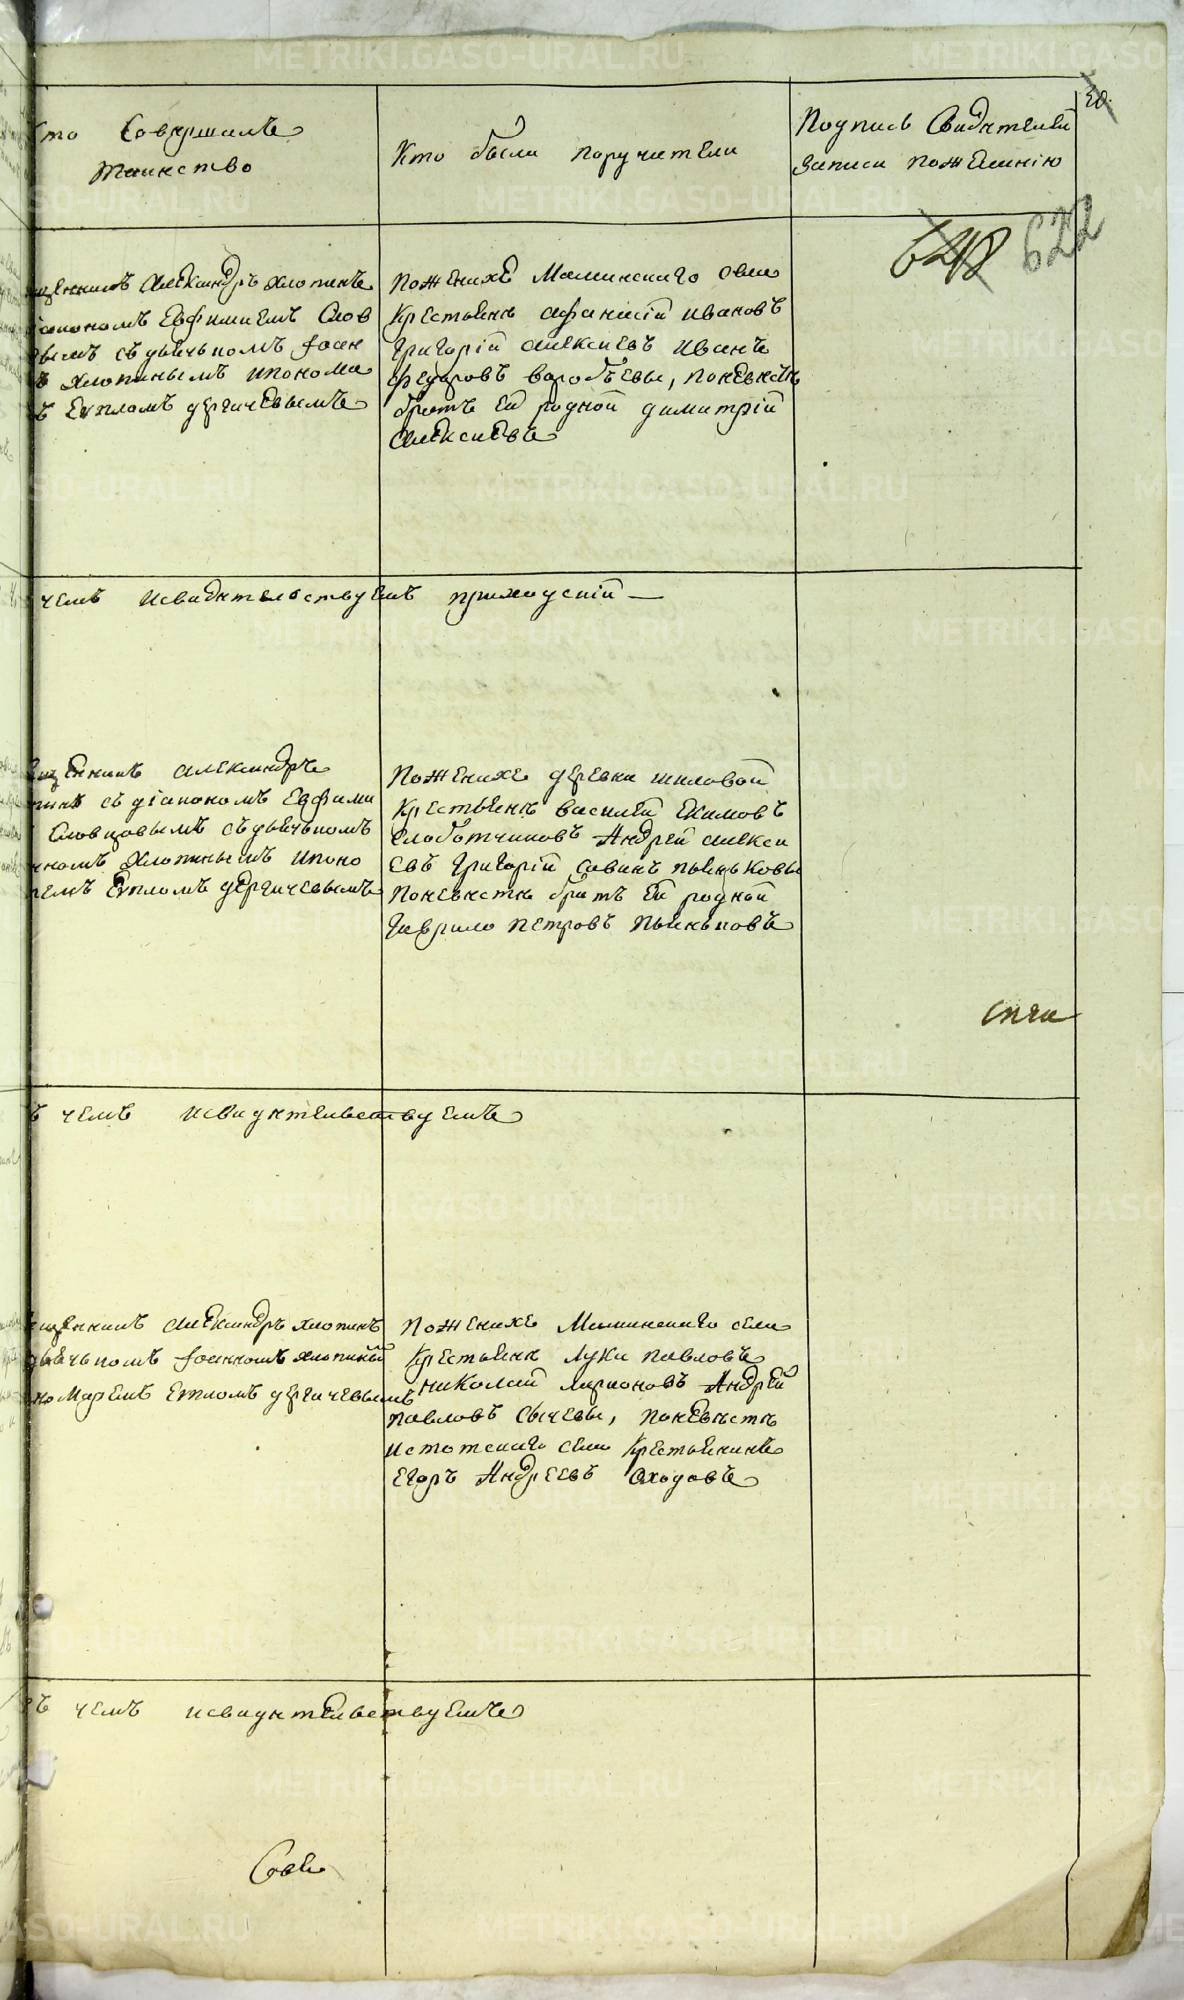 Кто Совершилъ
таинство
Кто были поручители
Подпись Свидѣтелей
записи пожеланію
28.
648
622
щенникъ Александръ Хлопинъ
діакономъ Евфимиемъ Слов
вымъ съ дьячькомъ Іоан
ъ Хлопинымъ ипонома
ъ Еvпломъ дергачевымъ
Поженихѣ Маминскаго села
Крестьянѣ Афанасій Ивановъ
Григорій Алексиевъ Иванъ
Федоровъ воробьевы, поневѣстѣ
братъ Ей родной димитрій
Алексиевъ
чемъ исвидѣтельствуемъ приходскій —
щенникъ Александръ
пинъ съ діакономъ Евфими
Словцовымъ съ дьячькомъ
нномъ Хлопинымъ ипоно
ремъ Еvпломъ дергачевымъ
Поженихе деревни шиловой
Крестьянѣ василей Екимовъ
слоботчиковъ Андрей Алекси
евъ Григорій Савинъ пьянковы
поневѣстѣ братъ Ей родной
Гаврило петровъ пьяньковъ
ъ чемъ исвидѣтельствуемъ
щенникъ Александръ Хлопинъ
дьячькомъ Іоанномъ Хлопины
номаремъ Еvпломъ дергачевымъ
Поженихе Маминскаго села
Крестьянѣ Лука павловъ
николай ларионовъ Андрей
павловъ сычевы, поневѣстѣ
истотскаго села Крестьянинъ
Егоръ Андреевъ
ъ чемъ исвидѣтельствуемъ